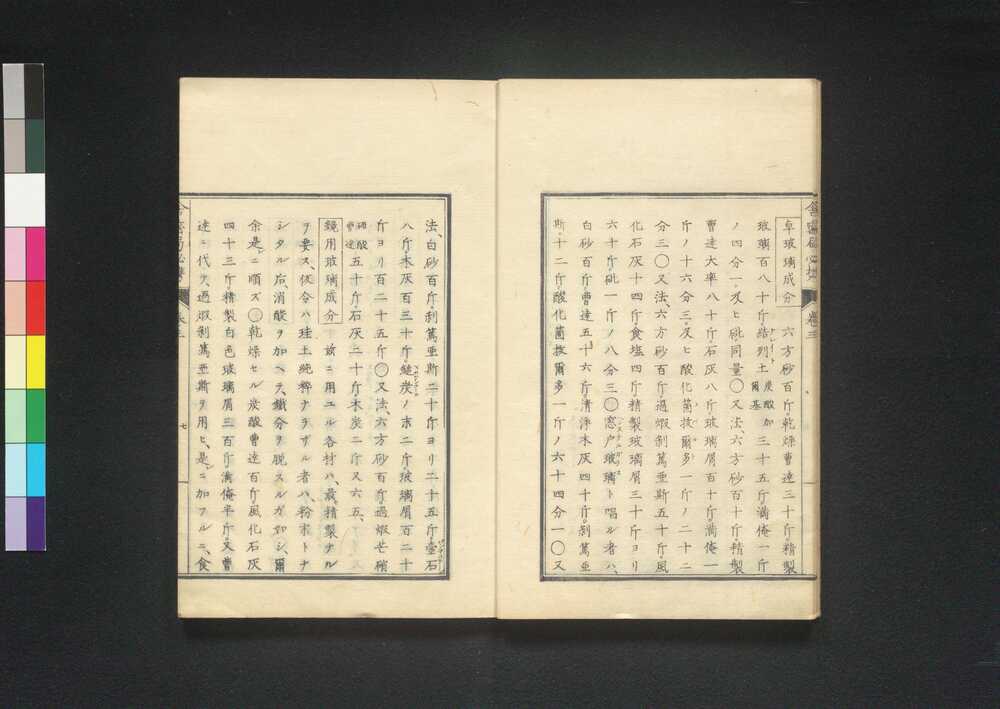 卓玻璃成分 六方砂百斤。乾燥曹達三十斤。精製
玻璃百八十斤。結列土 炭酸加爾基 三十五斤。満俺一斤
ノ四分一。及ヒ砒同量〇又法、六方砂百十斤。精製
曹達大率八十斤。石灰八斤。玻璃屑百十斤。満俺一
斤ノ十六分三。及ヒ酸化箇抜爾多一斤ノ二十二
分三〇又法、六方砂百斤。過煆剥篤亜斯五十斤。風
化石灰十四斤。食塩四斤。精製玻璃屑三十斤ヨリ
六十斤。砒一斤ノ八分三〇窓戸玻璃ト唱ル者ハ、
白砂百斤。曹達五十六斤。清浄木灰四十斤。剥篤亜
斯十二斤。酸化箇抜爾多一斤ノ六十四分一〇又
巻三
法、白砂百斤。剥篤亜斯二十斤ヨリ二十五斤。重石
八斤。木灰百三十斤。鎚炭ノ末二斤。玻璃屑百二十
斤ヨリ百二十五斤〇又法、六方砂百斤。過煆芒硝
硫酸曹達 五十斤。石灰二十斤。木炭二斤又六五、
鏡用玻璃成分 該ニ用ユル各材ハ、最精製ナル
ヲ要ス、仮令ハ珪土純粋ナラザル者ハ、粉末トナ
シタル后、消酸ヲ加ヘテ、鐵分ヲ脱スルガ如シ、爾
余是ニ順ズ〇乾燥セル炭酸曹達百斤。風化石灰
四十三斤。精製白色玻璃屑三百斤。満俺半斤。又曹
達ニ代ヘ、過煆剥篤亜斯ヲ用ヒ、是ニ加フルニ、食
七